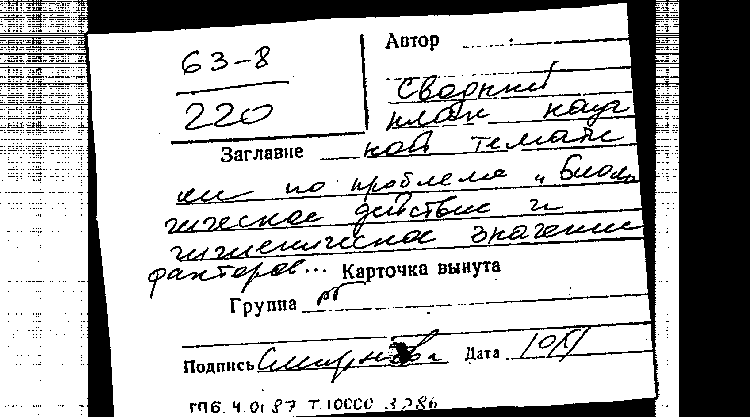 63-8
220
Автор
Сводный
план науч
ной темати
ки по проблеме „Биоло
гическое действие и
гигиеническое значение
факторов... Карточка вынута
Заглавие
Группа
Подпись Смирнова Дата
ГПБ. Ч. 0187 Т. 10000 3286